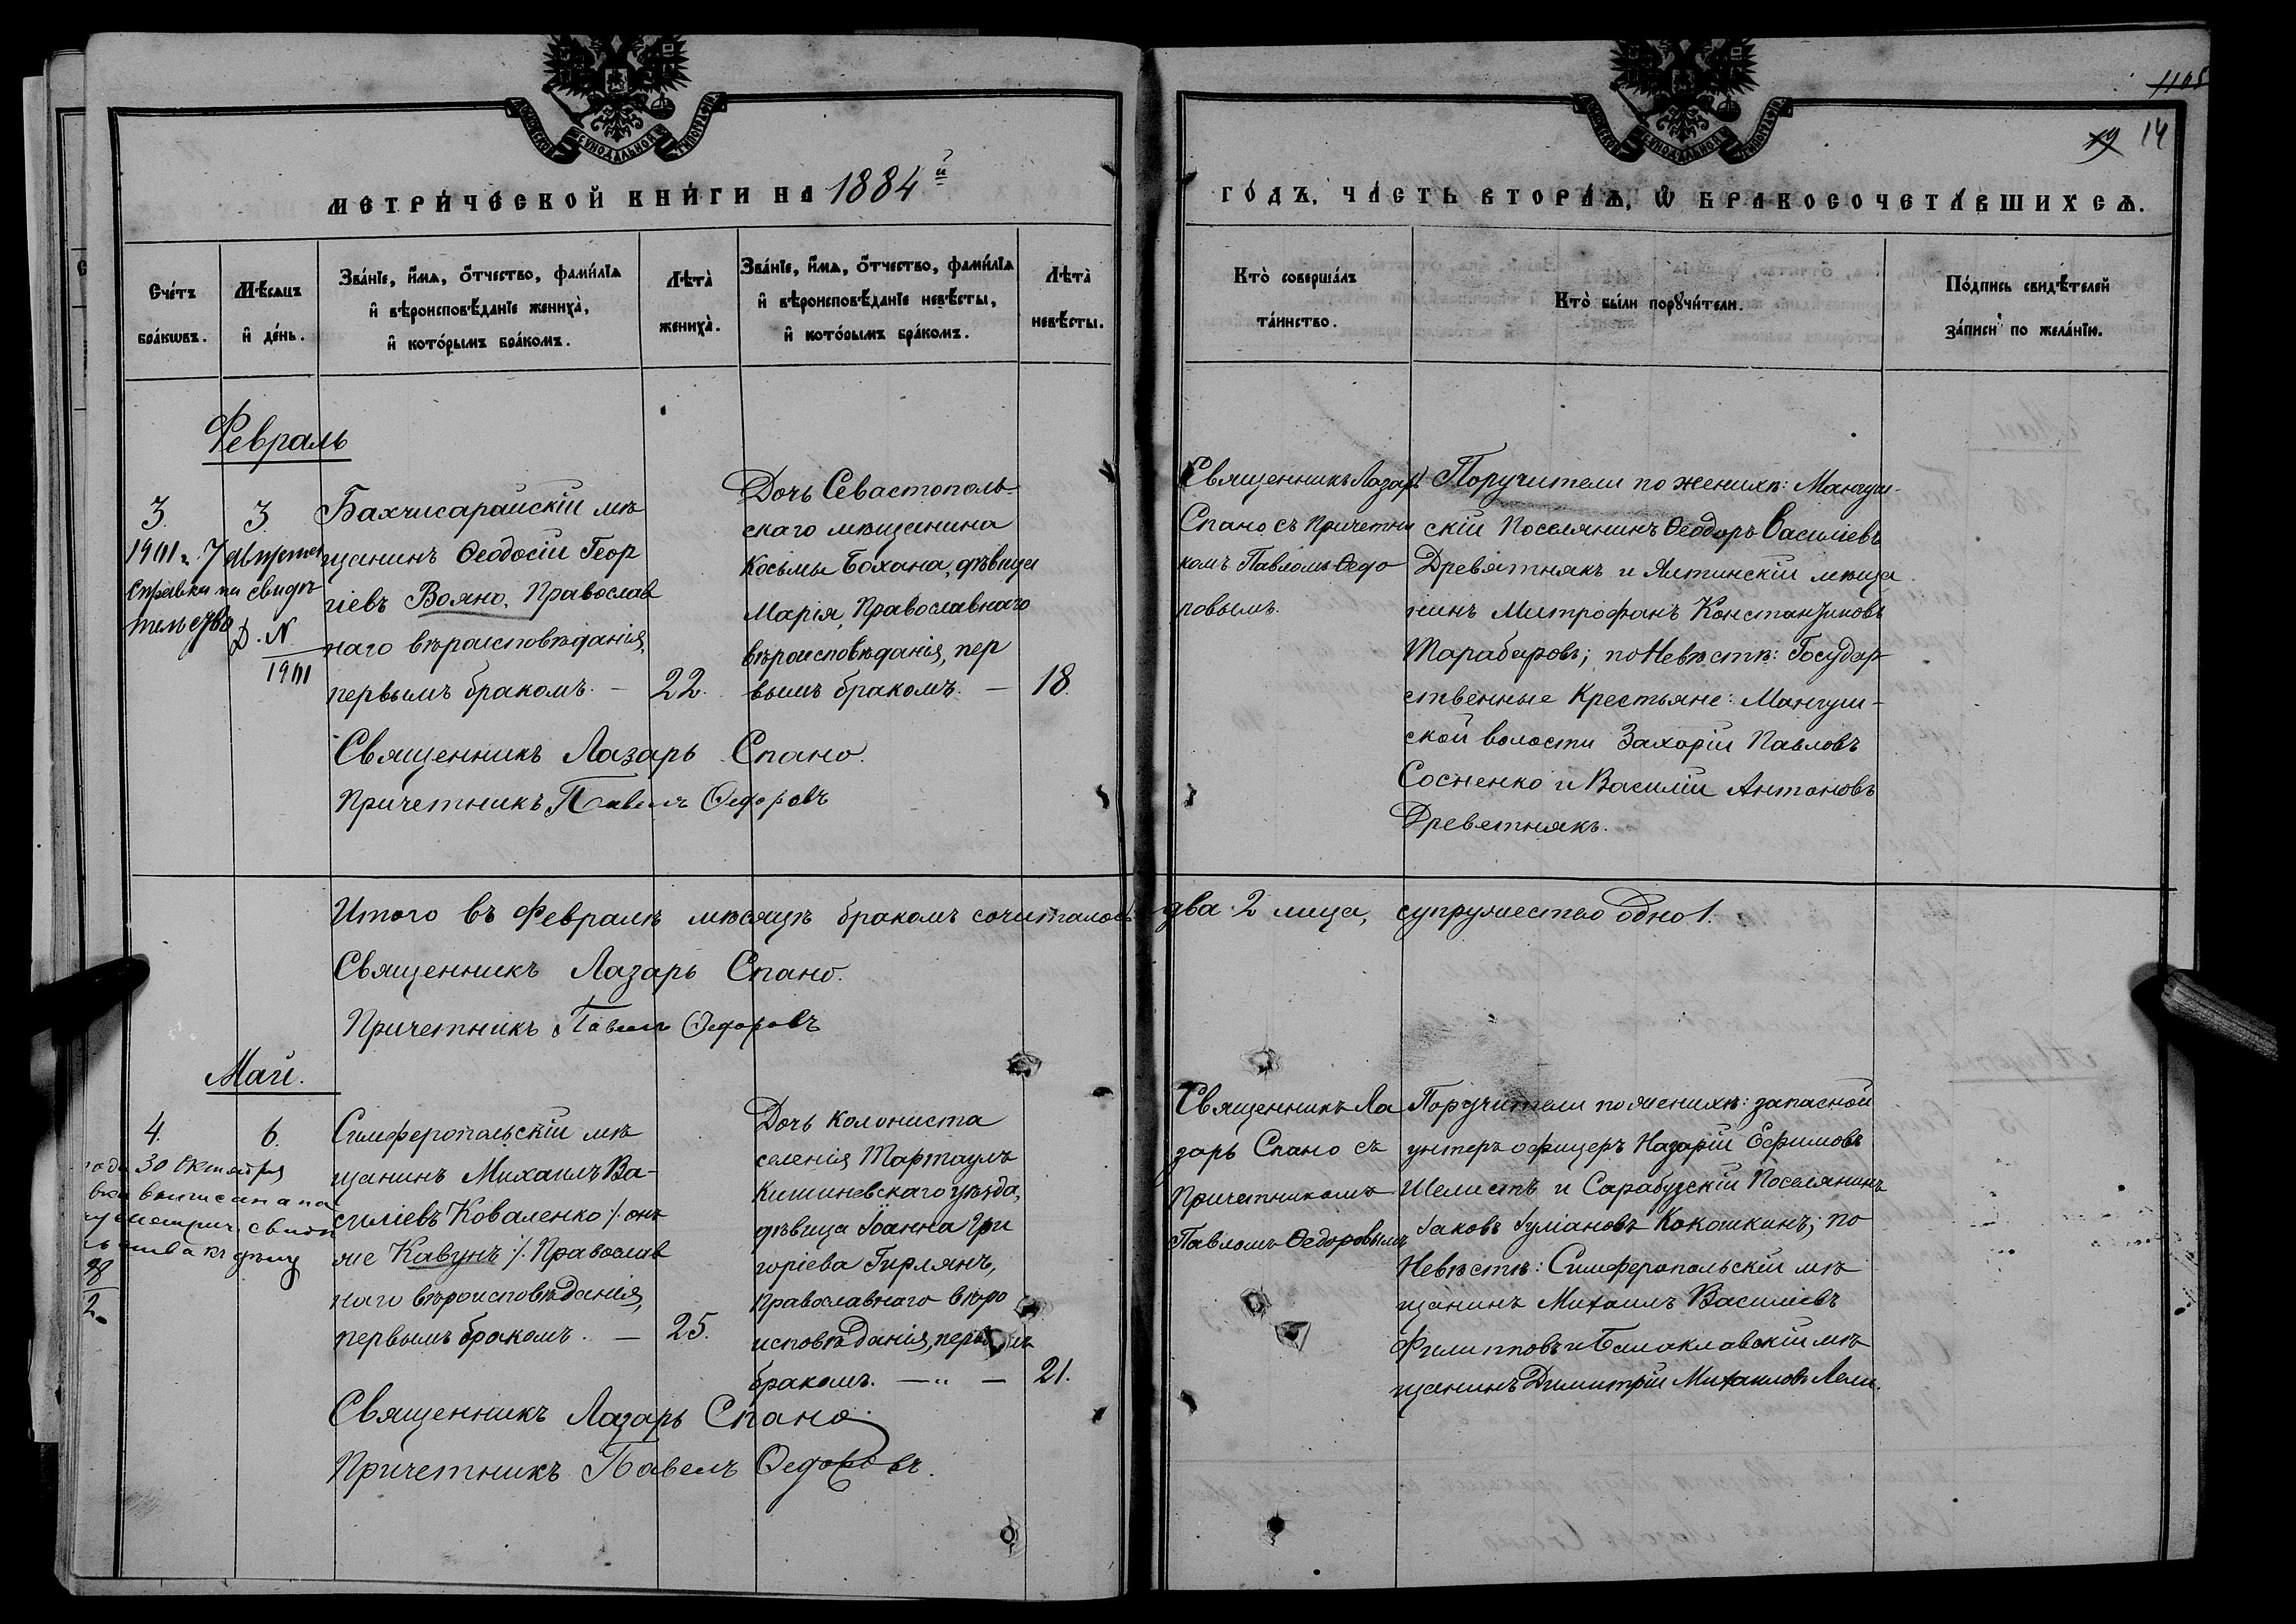 1105
19 14
СѴНОДАЛЬНОЙ
СѴНОДАЛЬНОЙ
МЕТРИ́ЧЕСКОЙ КНИ́ГИ НА 1884й
ГО́ДЪ, ЧА́СТЬ ВТОРА́Ѧ, Ѡ҆ БРАКОСОЧЕТА́ВШИХСѦ.
Сче́тъ
бра́кѡвъ.
Мѣ́сѧцъ
и҆ де́нь.
Зва́нїе, и҆́мѧ, ѻ҆́тчество, фами́лїѧ
и҆ вѣроисповѣ́данїе жениха̀,
и҆ кото́рымъ бра́комъ.
Лѣта̀
жениха̀.
Зва́нїе, и҆́мѧ, ѻ҆́тчество, фами́лїѧ
и҆ вѣроисповѣ́данїе невѣ́сты,
и҆ кото́рымъ бра́комъ.
Лѣта̀
невѣ́сты.
Кто̀ соверша́лъ
та́инство.
Кто̀ бы́ли порꙋчи́тели.
По́дпись свидѣ́телей
за́писи по жела́нїю.
Февраль
3.
3.
1901 г. 7 августа
справки на свидѣ
тельство
Д. N
1901
Бахчисарайскій мѣ
щанинъ Ѳеодосій Геор
гіевъ Вояно, Православ
наго вѣроисповѣданія,
первымъ бракомъ. —
22.
Дочь Севастополь-
скаго мѣщанина
Косьмы Бохана, дѣвица
Марія, Православнаго
вѣроисповѣданія, пер
вымъ бракомъ. —
18.
Священникъ Лазарь
Спано съ Причетни
комъ Павломъ Ѳедо
ровымъ.
Поручители по женихѣ: Мангуш-
скій Поселянинъ Ѳеодоръ Василіевъ
Древятнякъ и Ялтинскій мѣща
нинъ Митрофанъ Константиновъ
Тарабаровъ; по Невѣстѣ: Государ-
ственные Крестьяне: Мангуш-
ской волости Захарій Павловъ
Сосненко и Василій Антоновъ
Древетнякъ.
Священникъ Лазарь Спано.
Причетникъ Павелъ Ѳедоровъ
Итого въ Февралѣ мѣсяцѣ бракомъ сочиталось два 2 лица, супружество одно 1.
Священникъ Лазарь Спано.
Причетникъ Павелъ Ѳедоровъ
Май.
4.
6.
года 30 Октября
выписана
метрич. свидѣ
2
Симферопольскій мѣ
щанинъ Михаилъ Ва-
силіевъ Коваленко /. онъ
же Кавунъ ./. Православ
наго вѣроисповѣданія,
первымъ бракомъ. —
25.
Дочь колониста
селенія Тартаулъ
Кишиневскаго уѣзда,
дѣвица Іоанна Гри
горіева Гирлянъ,
Православнаго вѣро
исповѣданія, первымъ
бракомъ. — „ —
21.
Священникъ Ла
зарь Спано съ
Причетникомъ
Павломъ Ѳедоровымъ
Поручители по женихѣ: запасной
унтеръ офицеръ Назарій Ефимовъ
Шелистъ и Сарабузскій Поселянинъ
Іаковъ Іуліановъ Кокошкинъ; по
Невѣстѣ: Симферопольскій мѣ
щанинъ Михаилъ Василіевъ
Филипповъ и Балаклавскій мѣ
щанинъ Димитрій Михаиловъ Лели.
Священникъ Лазарь Спано
Причетникъ Павелъ Ѳедоровъ.